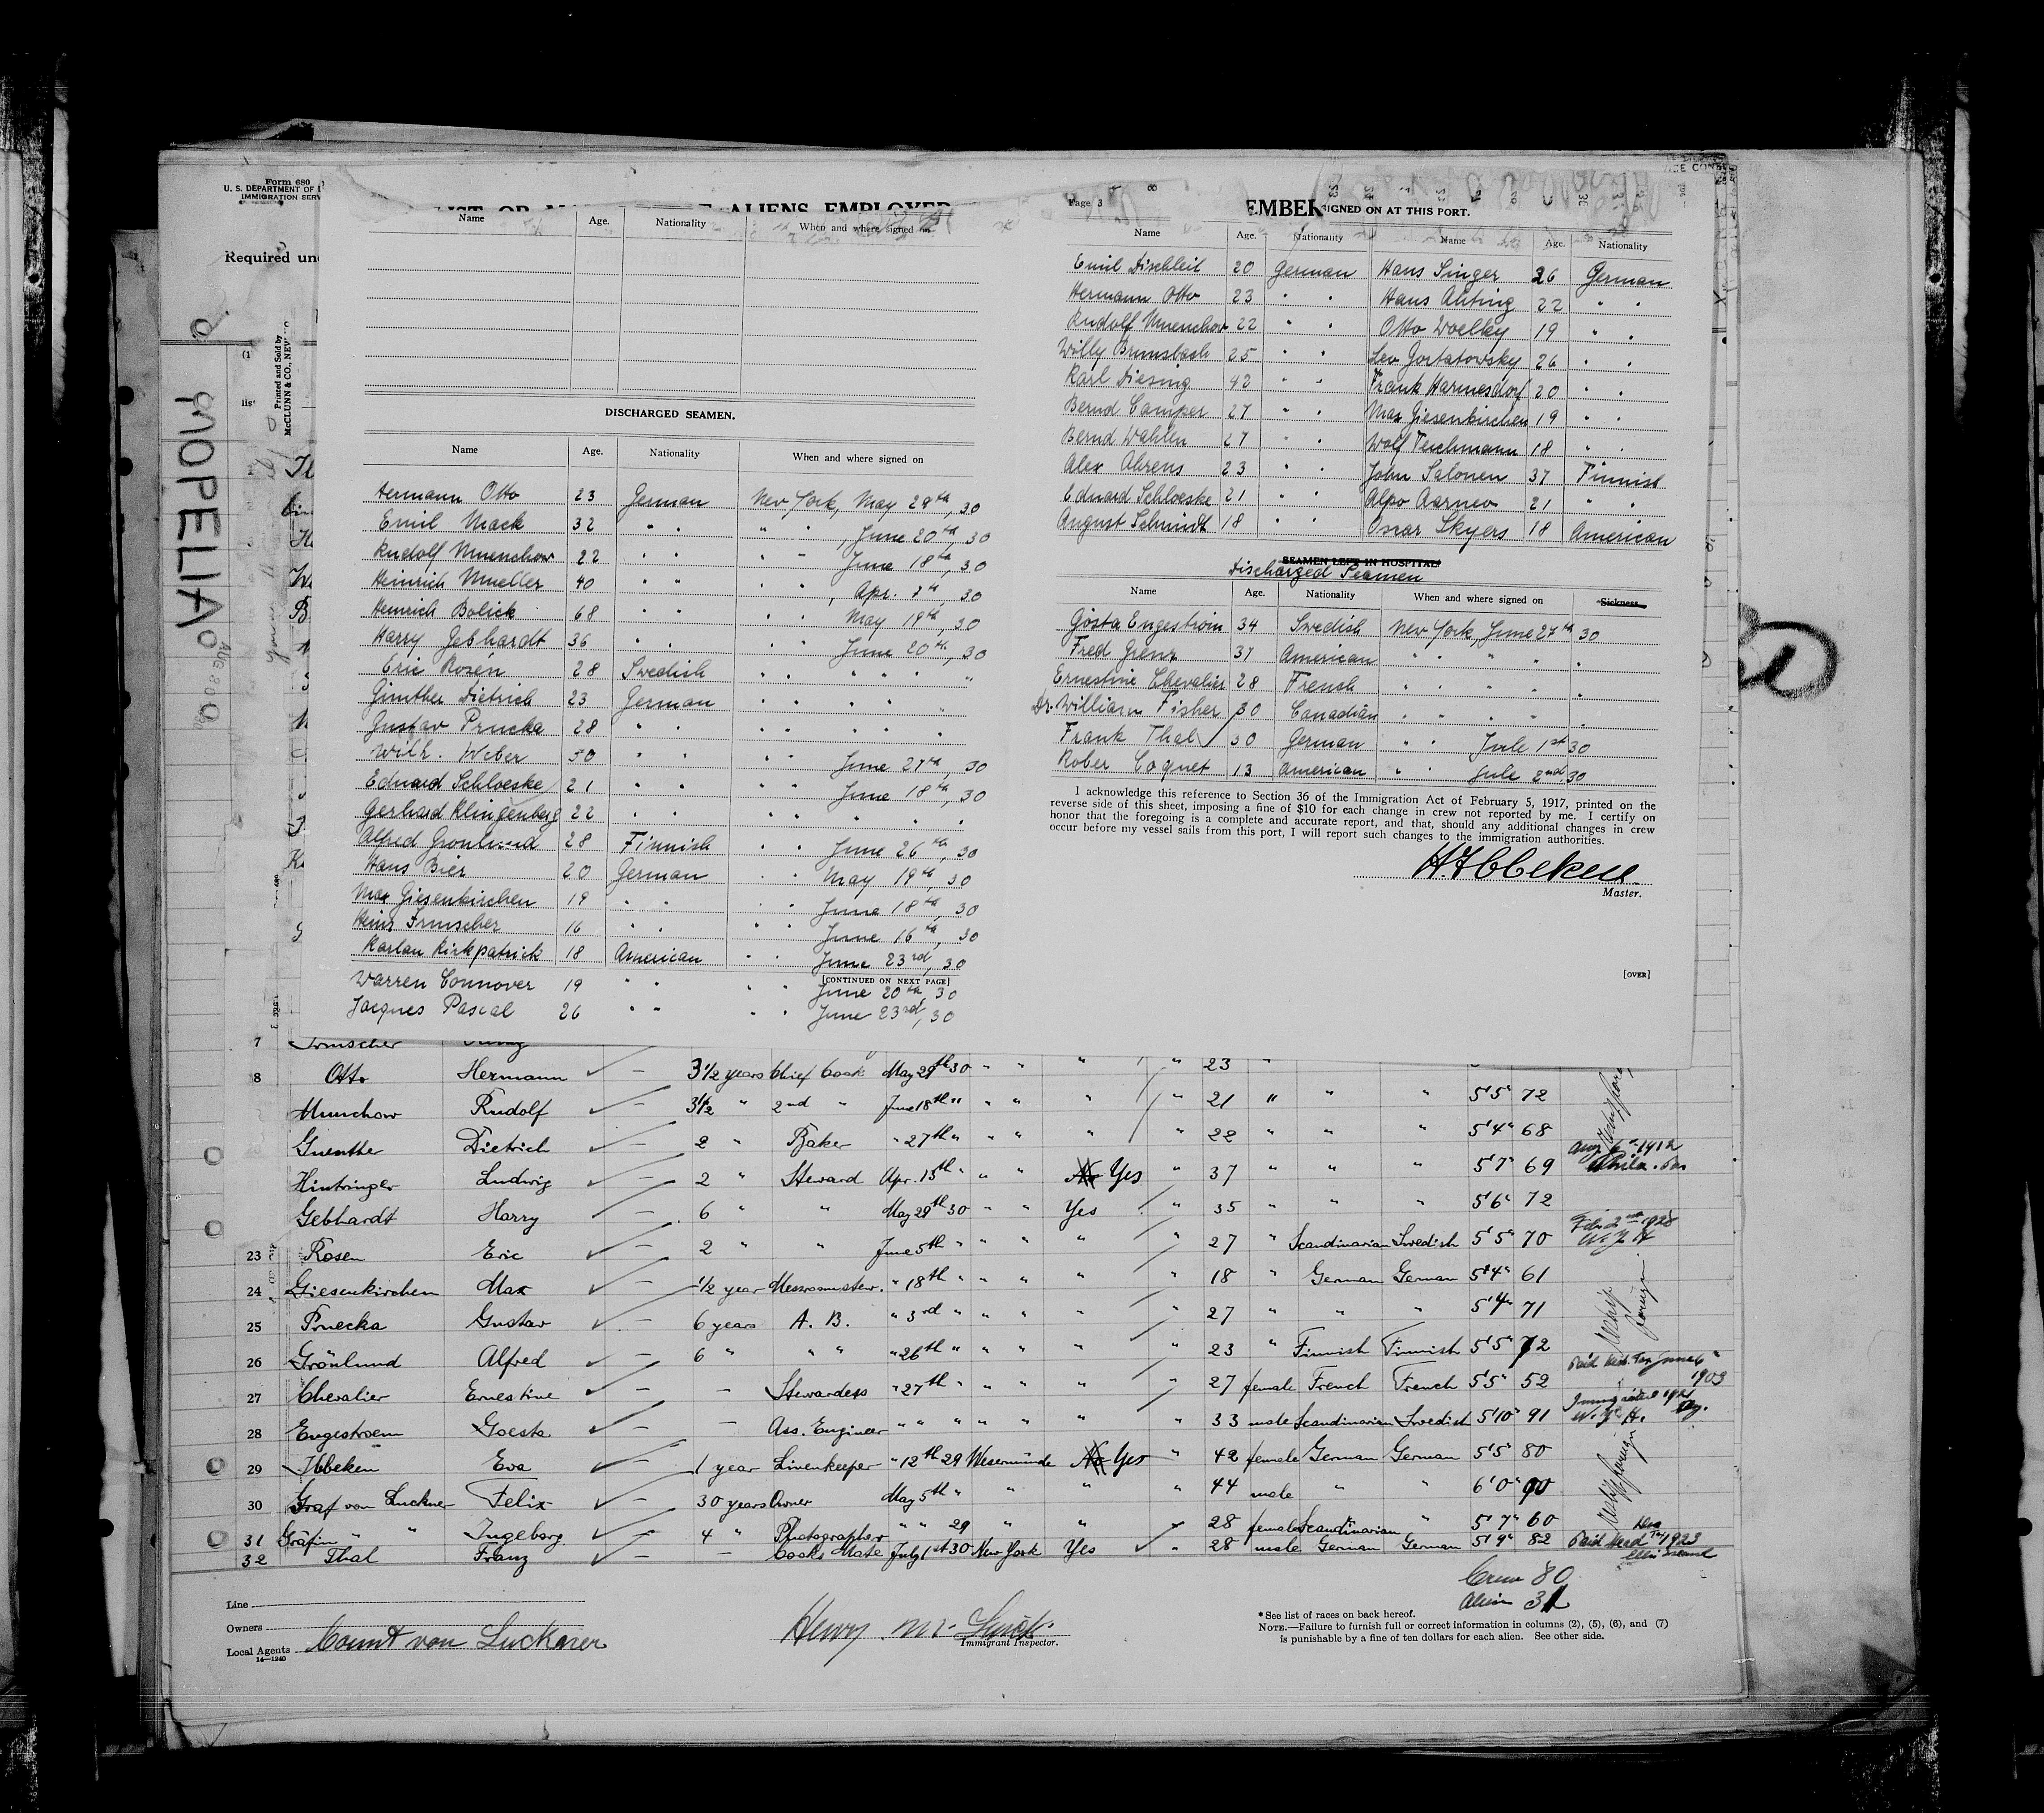 Form 680
U. S. DEPARTMENT OF
IMMIGRATION SERV
Required un
Printed and Sold by
McCLUNN & CO., NEW
MOPELIA
Name Age. Nationality When and where signed on
DISCHARGED SEAMEN.
Name Age. Nationality When and where signed on
Hermann Otto 23 German New York, May 29th, 30
Emil Mack 32 " " " " , June 20th, 30
Rudolf Muenchow 22 " " " " June 18th, 30
Heinrich Mueller 40 " " " " , Apr. 7th, 30
Heinrich Bolick 68 " " " " May 19th, 30
Harry Gebhardt 36 " " " " June 20th, 30
Eric Rosén 28 Swedish " " " " "
Günther Dietrich 23 German " " " " "
Gustav Prucka 28 " " " " " " "
Wilh. Weber 50 " " " " June 27th, 30
Eduard Schloeske 21 " " " " June 18th, 30
Gerhard Klingenberg 22 " " " " " " "
Alfred Gronlund 28 Finnish " " June 26th, 30
Hans Bier 20 German " " May 19th, 30
Max Giesenkirchen 19 " " " " June 18th, 30
Heinz Irmscher 16 " " " " June 16th, 30
Harlan Kirkpatrick 18 American " " June 23rd, 30
[CONTINUED ON NEXT PAGE]
Warren Connover 19 " " " " June 20th, 30
Jacques Pascal 26 " " " " June 23rd, 30
Page 3
EMBER SIGNED ON AT THIS PORT.
Name Age. Nationality Name Age. Nationality
Emil Dischleit 20 German Hans Singer 26 German
Hermann Otto 23 " " Hans Ahting 22 " "
Rudolf Muenchow 22 " " Otto Woelky 19 " "
Willy Brunsbach 25 " " Leo Gortatowsky 26 " "
Karl Diesing 42 " " Frank Harmesdorf 20 " "
Bernd Camper 27 " " Max Giesenkirchen 19 " "
Bernd Wahlen 27 " " Wolf Teichmann 18 " "
Alex Ahrens 23 " " John Salonen 37 Finnish
Eduard Schloeske 21 " " Alpo Aarneo 21 " "
August Schmidt 18 " " Oscar Skyers 18 American
SEAMEN LEFT IN HOSPITAL.
Discharged Seamen
Name Age. Nationality When and where signed on Sickness
Gösta Engeström 34 Swedish New York, June 27th 30
Fred Grenz 37 American " " " " "
Ernestine Chevalier 28 French " " " " "
Dr. William Fisher 30 Canadian " " " " "
Frank Thal 30 German " " Jule 1st 30
Rober Coquet 13 American " " Jule 2nd 30
I acknowledge this reference to Section 36 of the Immigration Act of February 5, 1917, printed on the
reverse side of this sheet, imposing a fine of $10 for each change in crew not reported by me. I certify on
honor that the foregoing is a complete and accurate report, and that, should any additional changes in crew
occur before my vessel sails from this port, I will report such changes to the immigration authorities.
H. Ibbeken
Master.
[OVER]
7 Irmscher
8 Otto Hermann — 3 1/2 years Chief Cook May 29th 30 " " " " 23 "
Munchow Rudolf — 3 1/2 " 2nd " June 18th " " " " " 21 " " " 5'5" 72
Guenther Dietrich — 2 " Baker " 27th " " " " " 22 " " " 5'4" 68
Hintringer Ludwig — 2 " Steward Apr. 15th " " " No Yes " 37 " " " 5'7" 69 Aug 6 1912 Phila. Pa
Gebhardt Harry — 6 " " May 29th 30 " " Yes " 35 " " " 5'6" 72
23 Rosen Eric — 2 " " June 5th " " " " " 27 " Scandinarian Swedish 5'5" 70 Feb 2nd 1928
24 Giesenkirchen Max — 1/2 year Messroomstew. " 18th " " " " " 18 " German German 5'4" 61
25 Pruecka Gustav — 6 years A. B. " 3rd " " " " " 27 " " " 5'4" 71
26 Grönlund Alfred — 6 " " " " 26th " " " " " 23 " Finnish Finnish 5'5" 72
27 Chevalier Ernestine — — Stewardess " 27th " " " " " 27 female French French 5'5" 52 Paid Head Tax June 6" 1903
28 Engestroem Goesta — — Ass. Engineer " " " " " " " 33 male Scandinarian Swedish 5'10" 91
29 Ibbeken Eva — 1 year Linenkeeper " 12th 29 Wesermünde No Yes " 42 female German German 5'5" 80
30 Graf von Luckner Felix — 30 years Owner May 5th " " " " 44 male " " 6'0" 90
31 Gräfin " " Ingeborg — 4 " Photographer " " 29 " " 28 female Scandinarian " 5'7" 60
32 Thal Franz — — Cooks Mate July 1st 30 New York Yes " 28 male German German 5'9" 82 Paid Head Tax 1923 Ellis Island
Crew 80
Alien 31
Line
Owners
Local Agents Count von Luckner
14—1240
Henry
Immigrant Inspector.
* See list of races on back hereof.
NOTE.—Failure to furnish full or correct information in columns (2), (5), (6), and (7)
is punishable by a fine of ten dollars for each alien. See other side.